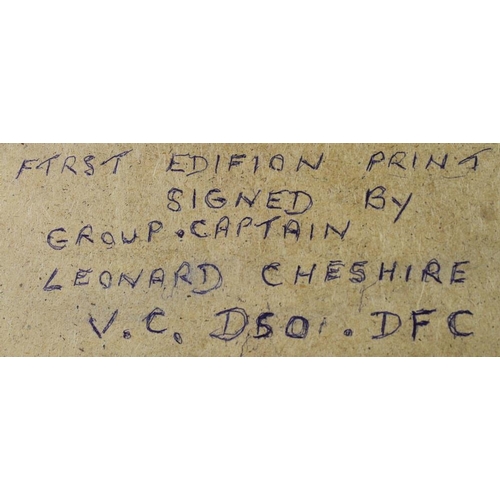 FIRST EDITION PRINT
SIGNED BY
GROUP.CAPTAIN
LEONARD CHESHIRE
V.C. DSO. DFC